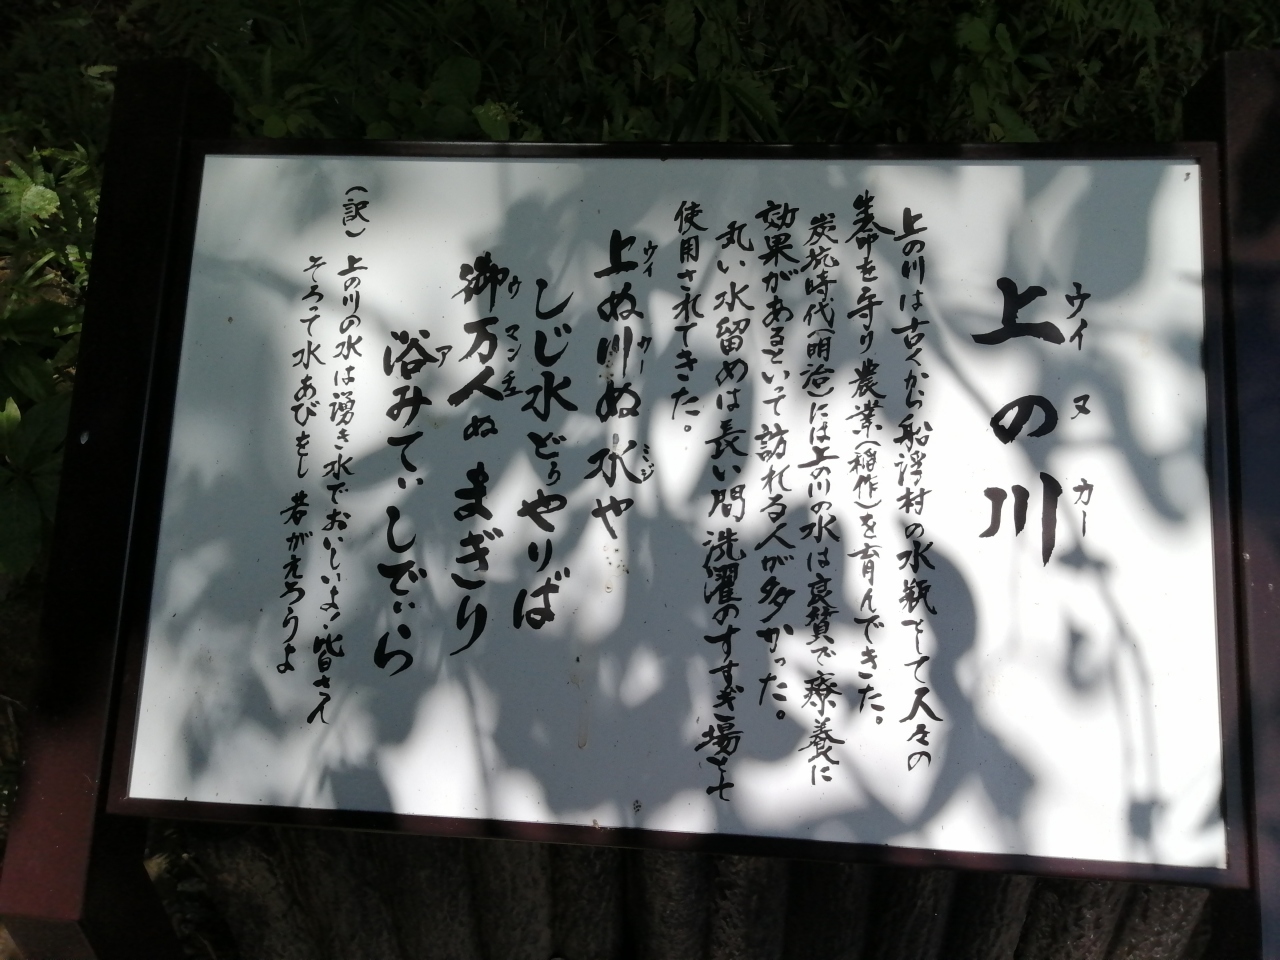 上の川
ウイ ヌ カー
上の川は古くから船浮村の水瓶として人々の
生命を守り農業(稲作)を育んできた。
炭坑時代(明治)には上の川の水は良質で療養に
効果があるといって訪れる人が多かった。
丸い水留めは長い間洗濯のすすぎ場として
使用されてきた。
上ぬ川ぬ水や
ウイ ウー ミジ
しじ水どぅやりば
御万人ぬ まぎり
ウ マン チュ
浴みてぃしでぃら
ア
(訳) 上の川の水は湧き水でおいしいよ!皆さん
そろって水あびをし 若がえろうよ